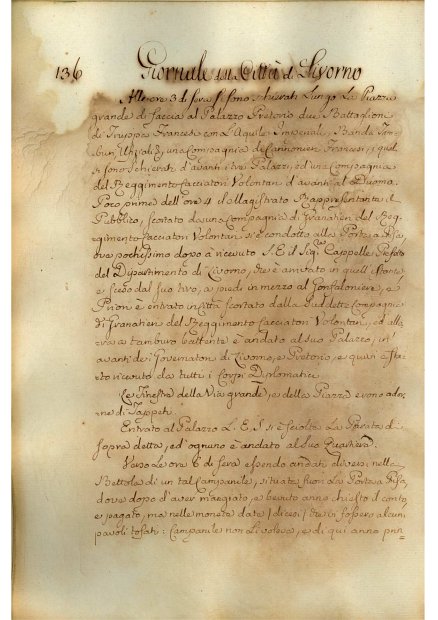 136 Giornale della Città di Livorno
Alle ore 3 di sera si sono schierati lungo la Piazza
grande di faccia al Palazzo Pretorio due Battaglioni
di Truppa Francese con l'Aquile Imperiali, Banda
una Compagnia de Cannonieri Francesi, i quali
si sono schierati d'avanti i tre Palazzi, ed una Compagnia
del Reggimento Cacciatori Volontari d'avanti al Duomo.
Poco prima dell'ore 4 il Magistrato Rappresentante il
Pubblico, scortato da una Compagnia di Granatieri del Reg-
gimento Cacciatori Volontari si è condotto alla Porta a Pisa
ove pochissimo dopo à ricevuto S. E. il Sigr. Cappelle Prefetto
del Dipartimento di Livorno, che è arrivato in quell'istante
e sceso dal suo tiro, a piedi in mezzo al Gonfaloniere, e
Priori è entrato in Città scortato dalla sud.
di Granatieri del Reggimento Cacciatori Volontari, ed alle
ore 4 a tamburo battente è andato al suo Palazzo, in
avanti de i Governatori di Livorno, e Pretorio, e quivi è sta-
to ricevuto da tutti i Corpi Diplomatici.
Le Finestre della Via grande, e della Piazza erono ador-
ne di Tappeti.
Entrato al Palazzo L. E. S. si è sciolta la Parata di
sopra detta, ed ognuno è andato al suo Quartiere.
Verso le ore 6 di sera essendo andati diversi nella
Bettola di un tal Campanile, situata fuori la Porta a Pisa,
dove dopo d'aver mangiato, e bevuto anno chiesto il conto,
e pagato, ma nelle monete date / dicesi / che vi fossero alcuni
pavoli tosati: Campanile non li voleva, e di qui anno prin-